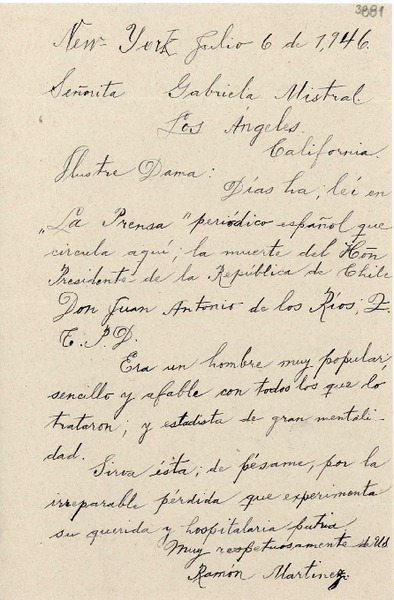 3881
New-York Julio 6 de 1,946.
Señorita Gabriela Mistral.
Los Angeles.
California.
Ilustre Dama:
Días ha; leí en
"La Prensa" periódico español que
circula aquí; la muerte del Hon
Presidente de la República de Chile
Don Juan Antonio de los Ríos; Q.
E. P. D.
Era un hombre muy popular,
sencillo y afable con todos los que lo
trataron; y estadista de gran mentali-
dad.
Sirva ésta; de pésame, por la
irreparable pérdida que experimenta
su querida y hospitalaria patria.
Muy respetuosamente de Ud
Ramón Martinez.